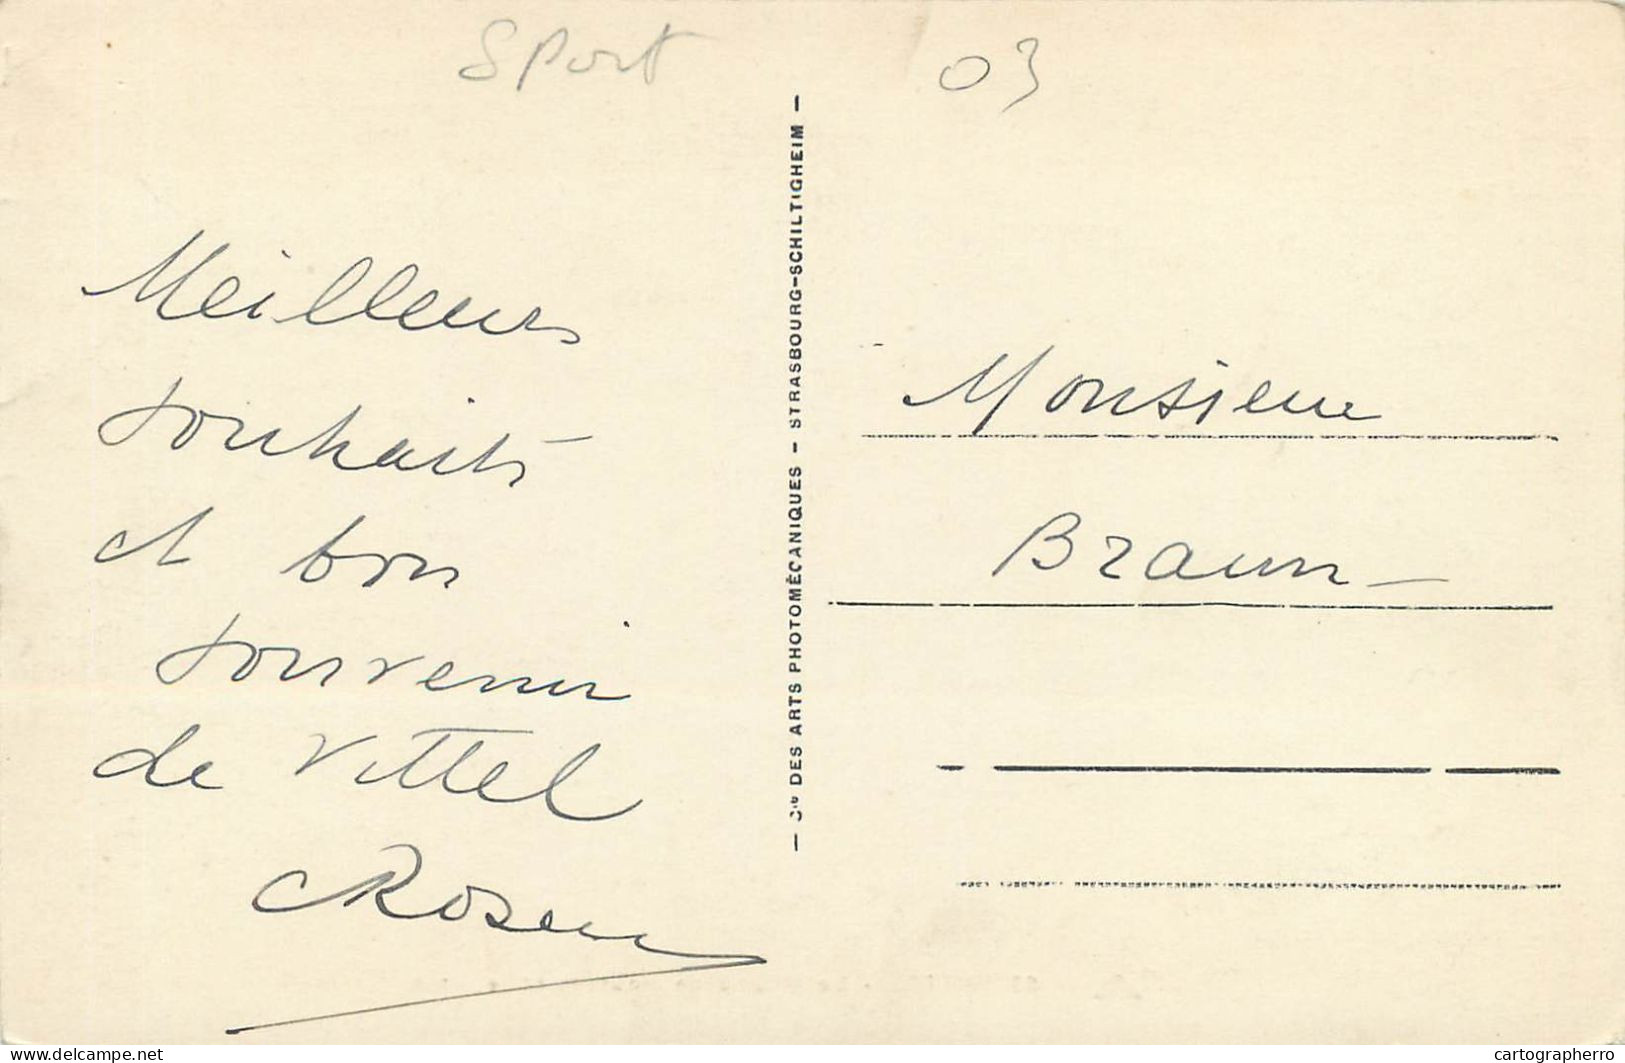 Sport
03
Meilleurs
souhaits
et bon
souvenir
de Vittel
— Cie DES ARTS PHOTOMÉCANIQUES – STRASBOURG-SCHILTIGHEIM —
Monsieur
Braun –
www.delcampe.net
cartographerro